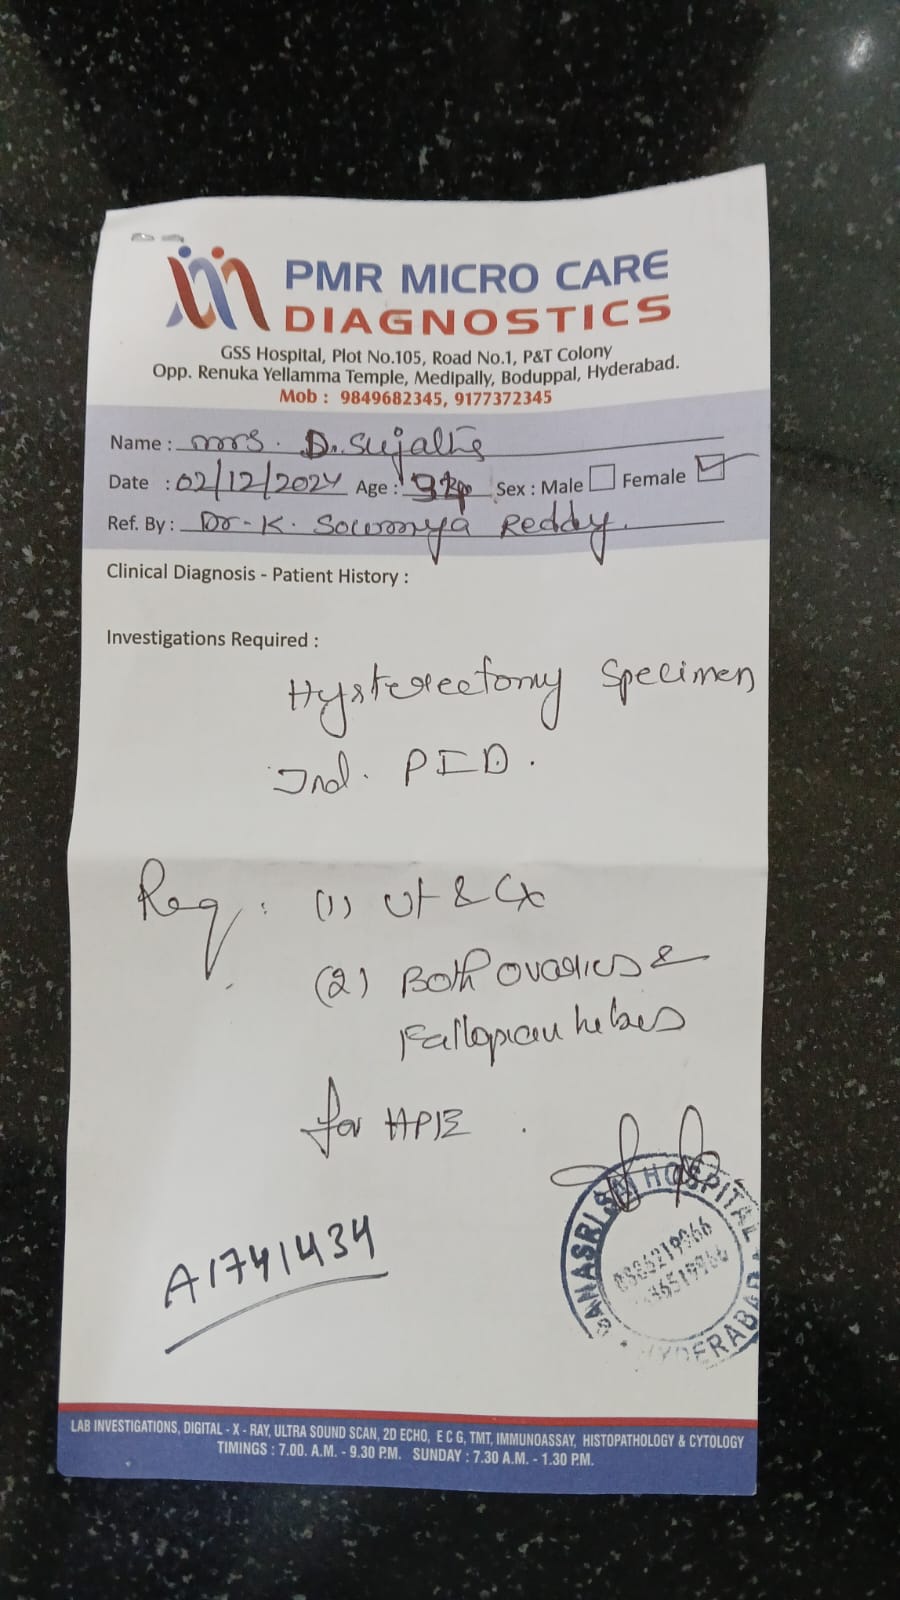 PMR MICRO CARE
DIAGNOSTICS
GSS Hospital, Plot No.105, Road No.1, P&T Colony
Opp. Renuka Yellamma Temple, Medipally, Boduppal, Hyderabad.
Mob : 9849682345, 9177372345
Name : mrs. D. Sujatha
Date : 02/12/2024 Age : Sex : Male Female
Ref. By : Dr. K. Sowmya Reddy.
Clinical Diagnosis - Patient History :
Investigations Required :
Hysterectomy Specimen
Ind. PID.
Req : (1) Ut & Cx
(2) Both ovaries &
Fallopian tubes
for HPE.
A1741434
SRI SAI HOSPITAL
HYDERABAD
LAB INVESTIGATIONS, DIGITAL - X - RAY, ULTRA SOUND SCAN, 2D ECHO, E C G, TMT, IMMUNOASSAY, HISTOPATHOLOGY & CYTOLOGY
TIMINGS : 7.00. A.M. - 9.30 P.M. SUNDAY : 7.30 A.M. - 1.30 P.M.